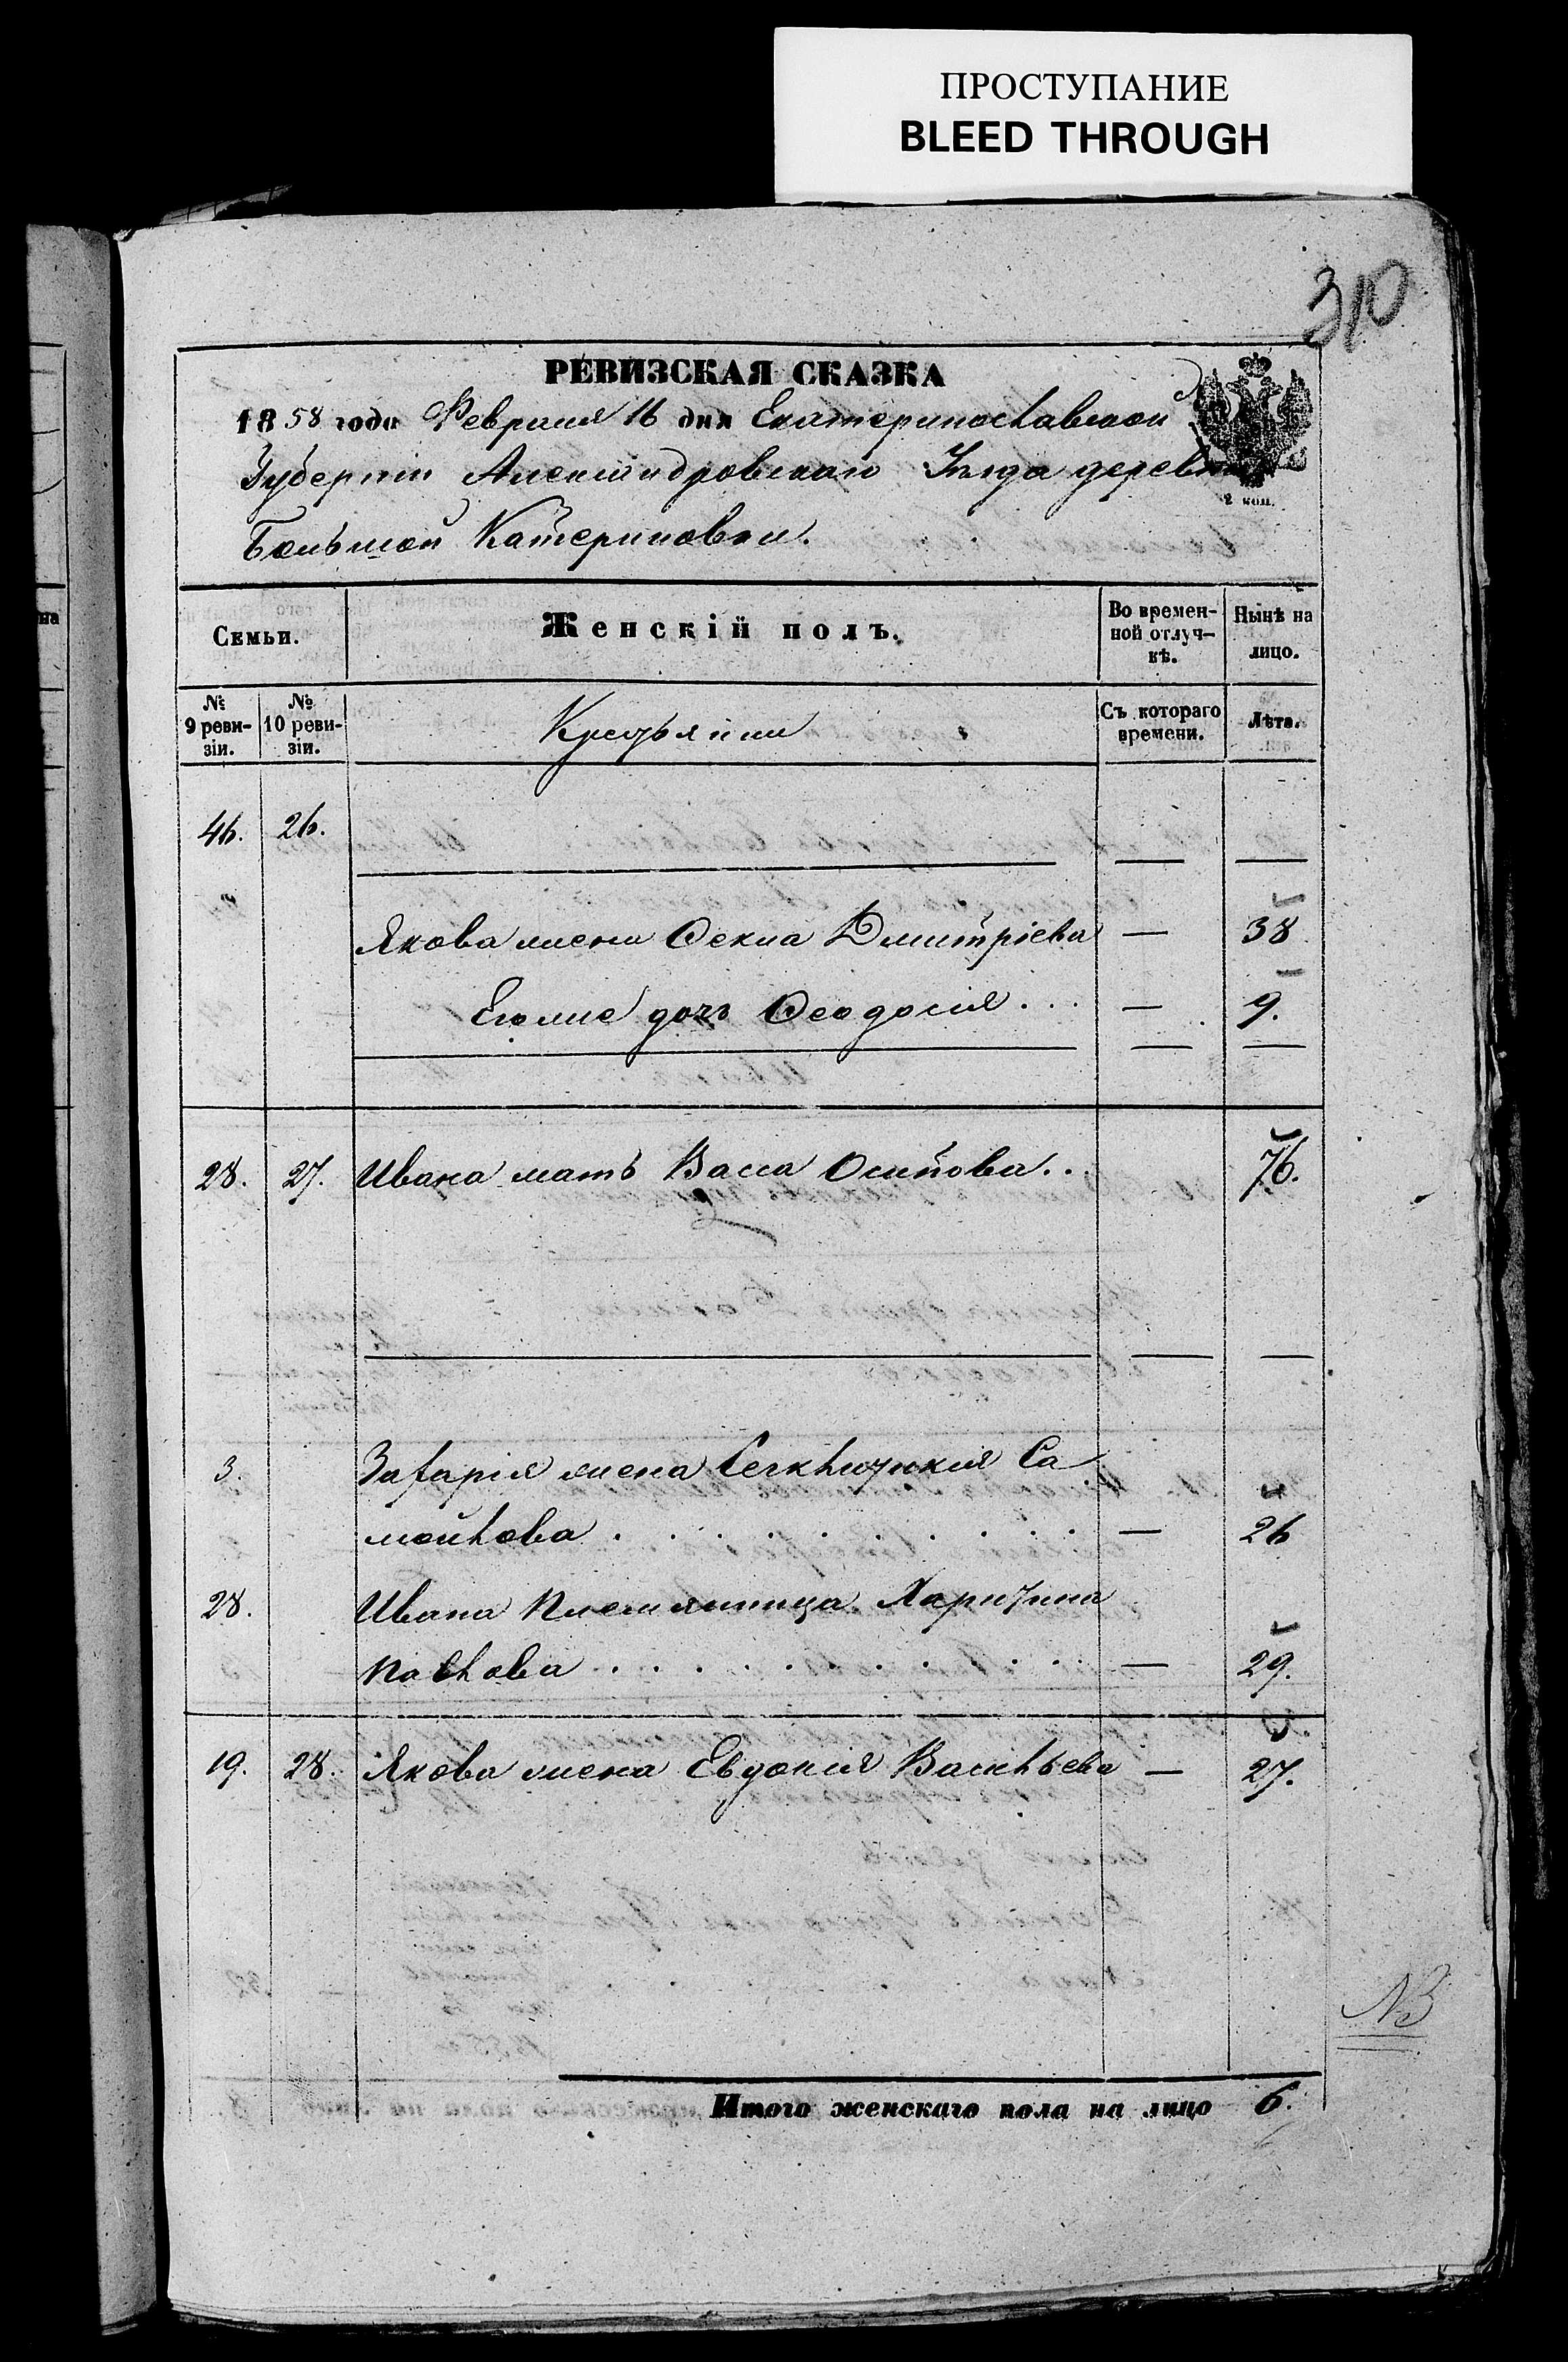 ПРОСТУПАНИЕ
BLEED THROUGH
310
РЕВИЗСКАЯ СКАЗКА
1858 года Февраля 16 дня Екатеринославской
Губерніи Александровскаго Уѣзда деревни
2 коп.
Большой Катериновки.
Семьи. Женскій полъ. Во времен- Нынѣ на
ной отлуч- лицо.
кѣ.
№ 9 реви- зіи. № 10 реви- зіи. Крестьянки Съ котораго времени. Лѣта.
46. 26. — —
Якова жена Фекла Дмитріева — 38
Его же дочь Феодосія . . . — 9.
28. 27. Ивана мать Васса Осипова . . 76.
3. Захарія жена Са
мойлова . . . . . . . . . — 26
28. Ивана племянница Харитина
Павлова . . . . . . . . . — 29.
19. 28. Якова жена Евдокія Васильева — 27.
NB
Итого женскаго пола на лицо 6.